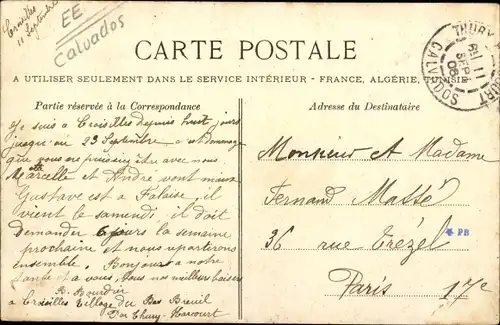 Croisilles
11 Septembre
EE
Calvados
CARTE POSTALE
A UTILISER SEULEMENT DANS LE SERVICE INTÉRIEUR - FRANCE, ALGÉRIE, TUNISIE
Partie réservée à la Correspondance
Adresse du Destinataire
THURY HARCOURT
11
SEPT
06
CALVADOS
Je suis à Croisilles depuis huit jours
jusqu'au 23 Septembre c'est dommage
que vous ne puissiez être avec nous
Marcelle et André vont mieux
Gustave est a Falaise, il
vient le samendi, il doit
demander 6 jours la semaine
prochaine et nous repartirons
ensemble. Bonjour a notre
tante et a vous, tous nos meilleurs baisers
B. Bourdon
a Croisilles Village du Bas Breuil
Par Thury-Harcourt
Monsieur et Madame
Fernand Massé
36 rue Trézel
PB
Paris 17e